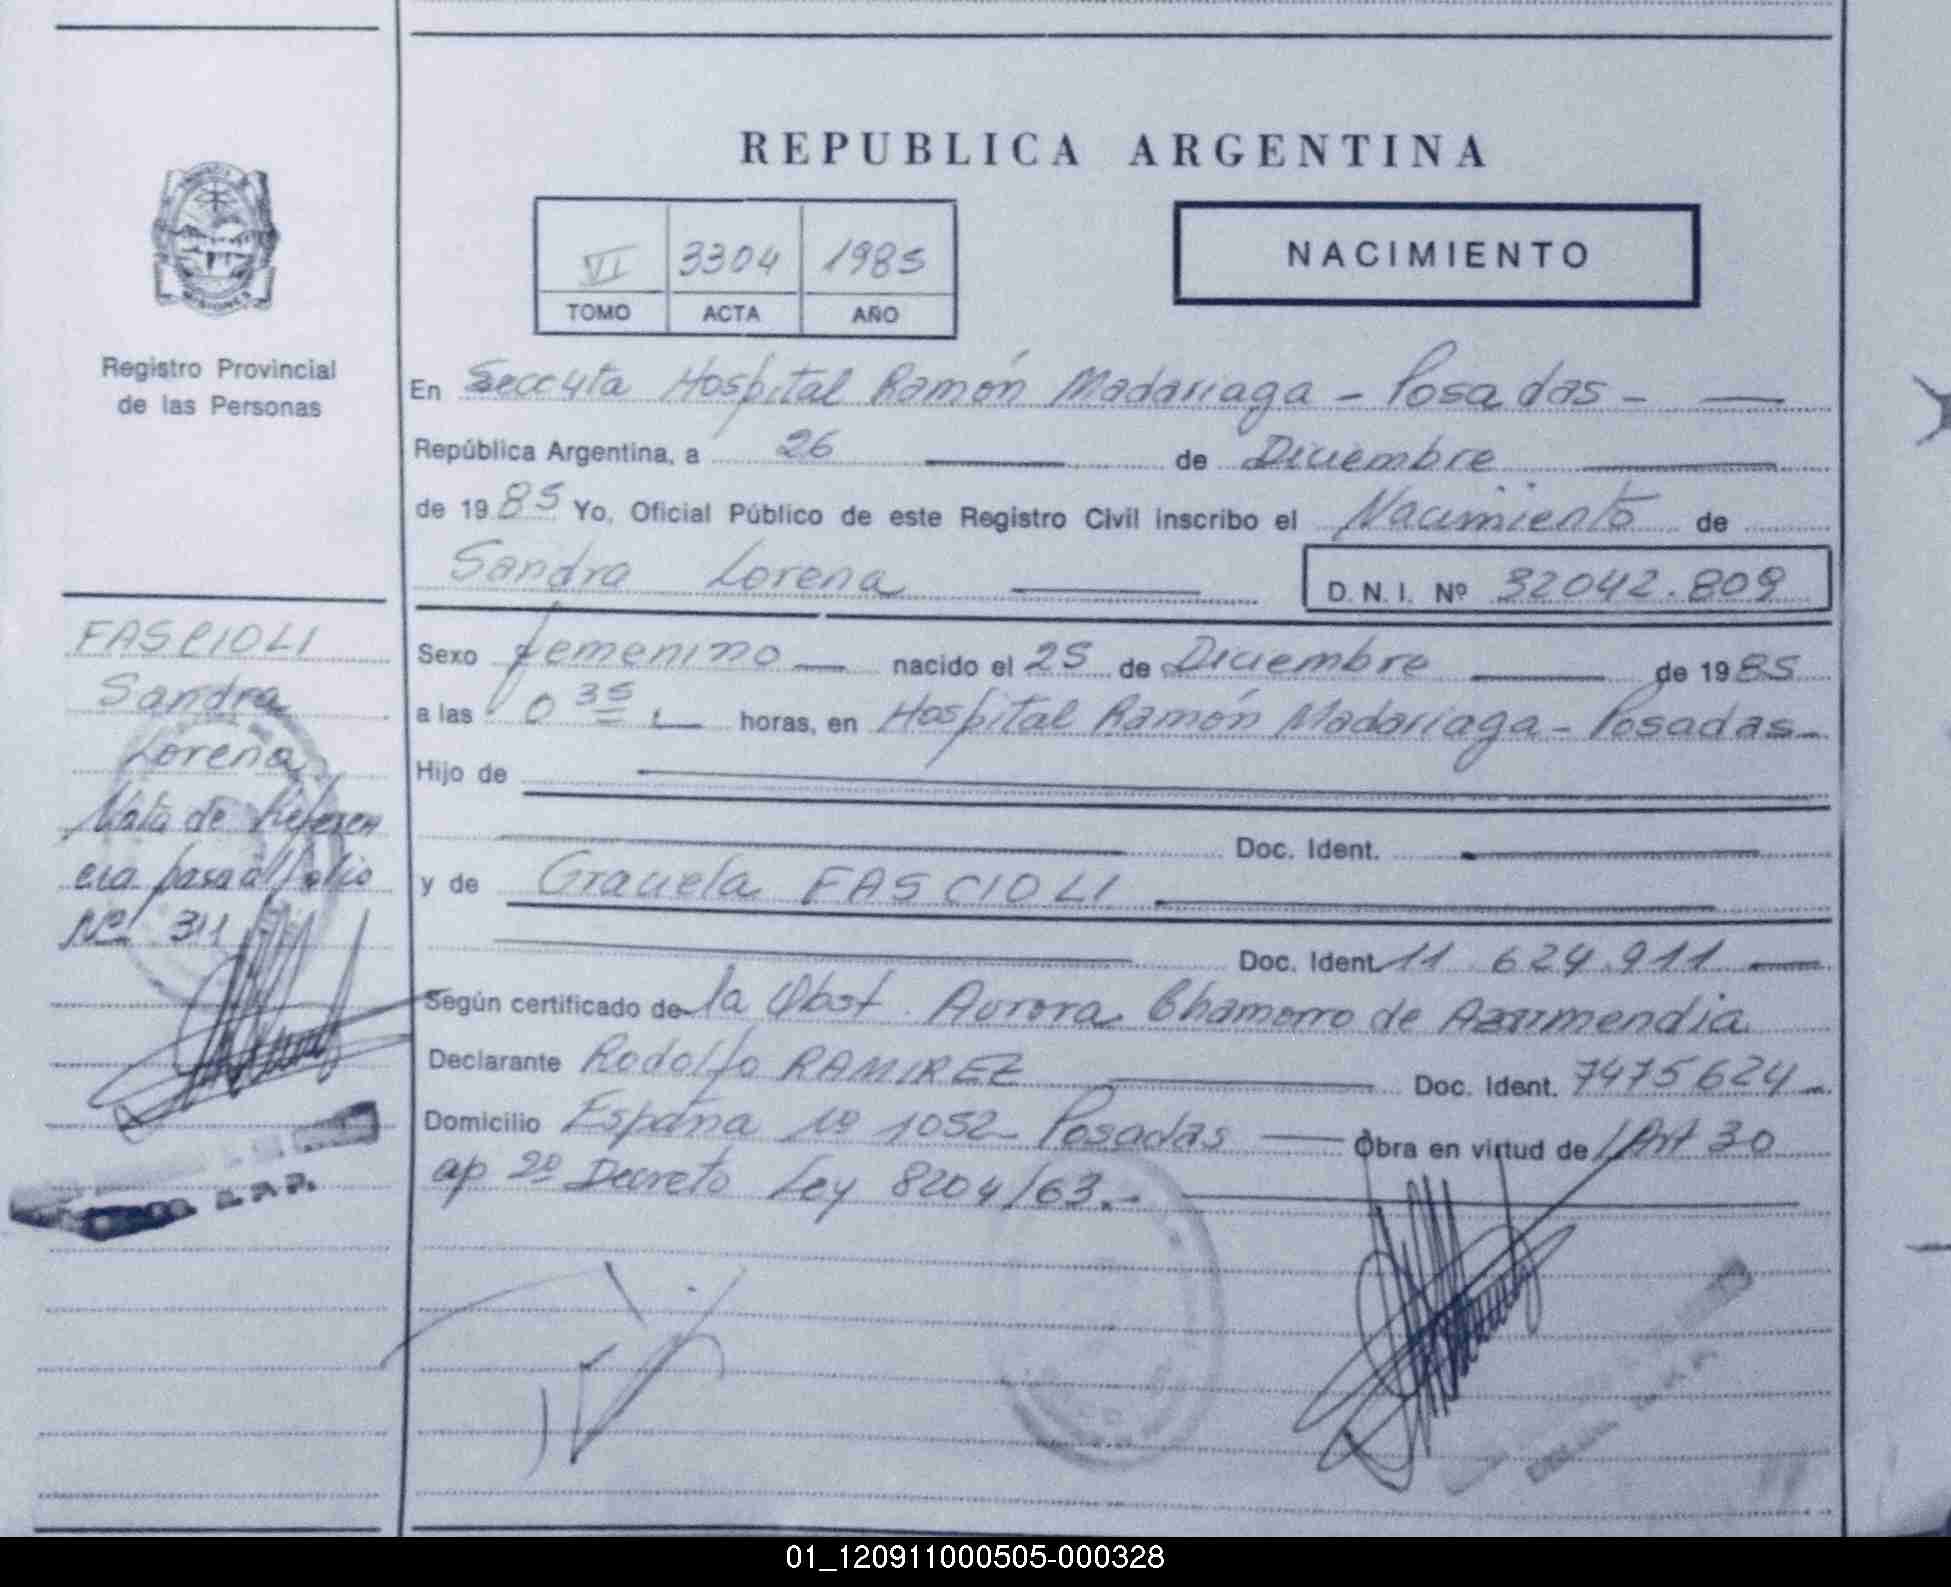 REPUBLICA ARGENTINA
VI 3304 1985
TOMO ACTA AÑO
NACIMIENTO
MISIONES
Registro Provincial
de las Personas
En Secc 4ta Hospital Ramón Madariaga - Posadas -
República Argentina, a 26 de Diciembre
de 1985 Yo, Oficial Público de este Registro Civil inscribo el Nacimiento de
Sandra Lorena
D. N. I. Nº 32042.809
Sexo femenino nacido el 25 de Diciembre de 1985
a las 0 35 horas, en Hospital Ramón Madariaga - Posadas -
Hijo de
Doc. Ident.
y de Graciela FASCIOLI
Doc. Ident. 11.624.911
Según certificado de la Obst. Aurora Chamorro de Azurmendia
Declarante Rodolfo RAMIREZ Doc. Ident. 7475624 -
Domicilio España nº 1052 - Posadas Obra en virtud de Art 30
ap 2º Decreto Ley 8204/63.-
FASCIOLI
Sandra
Lorena
Nota de Referen
cia pasa al folio
Nº 311
01_120911000505-000328